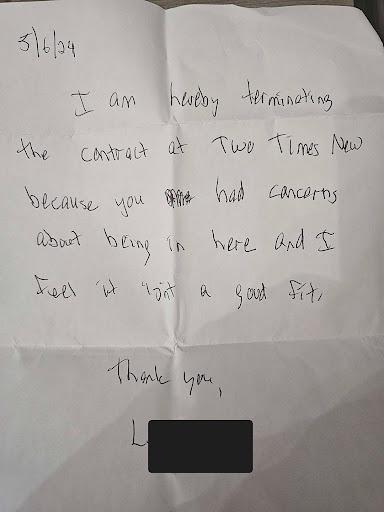 5/6/24
I am hereby terminating
the contract at Two Times New
because you had concerns
about being in here and I
feel it isn't a good fit.
Thank you,
L